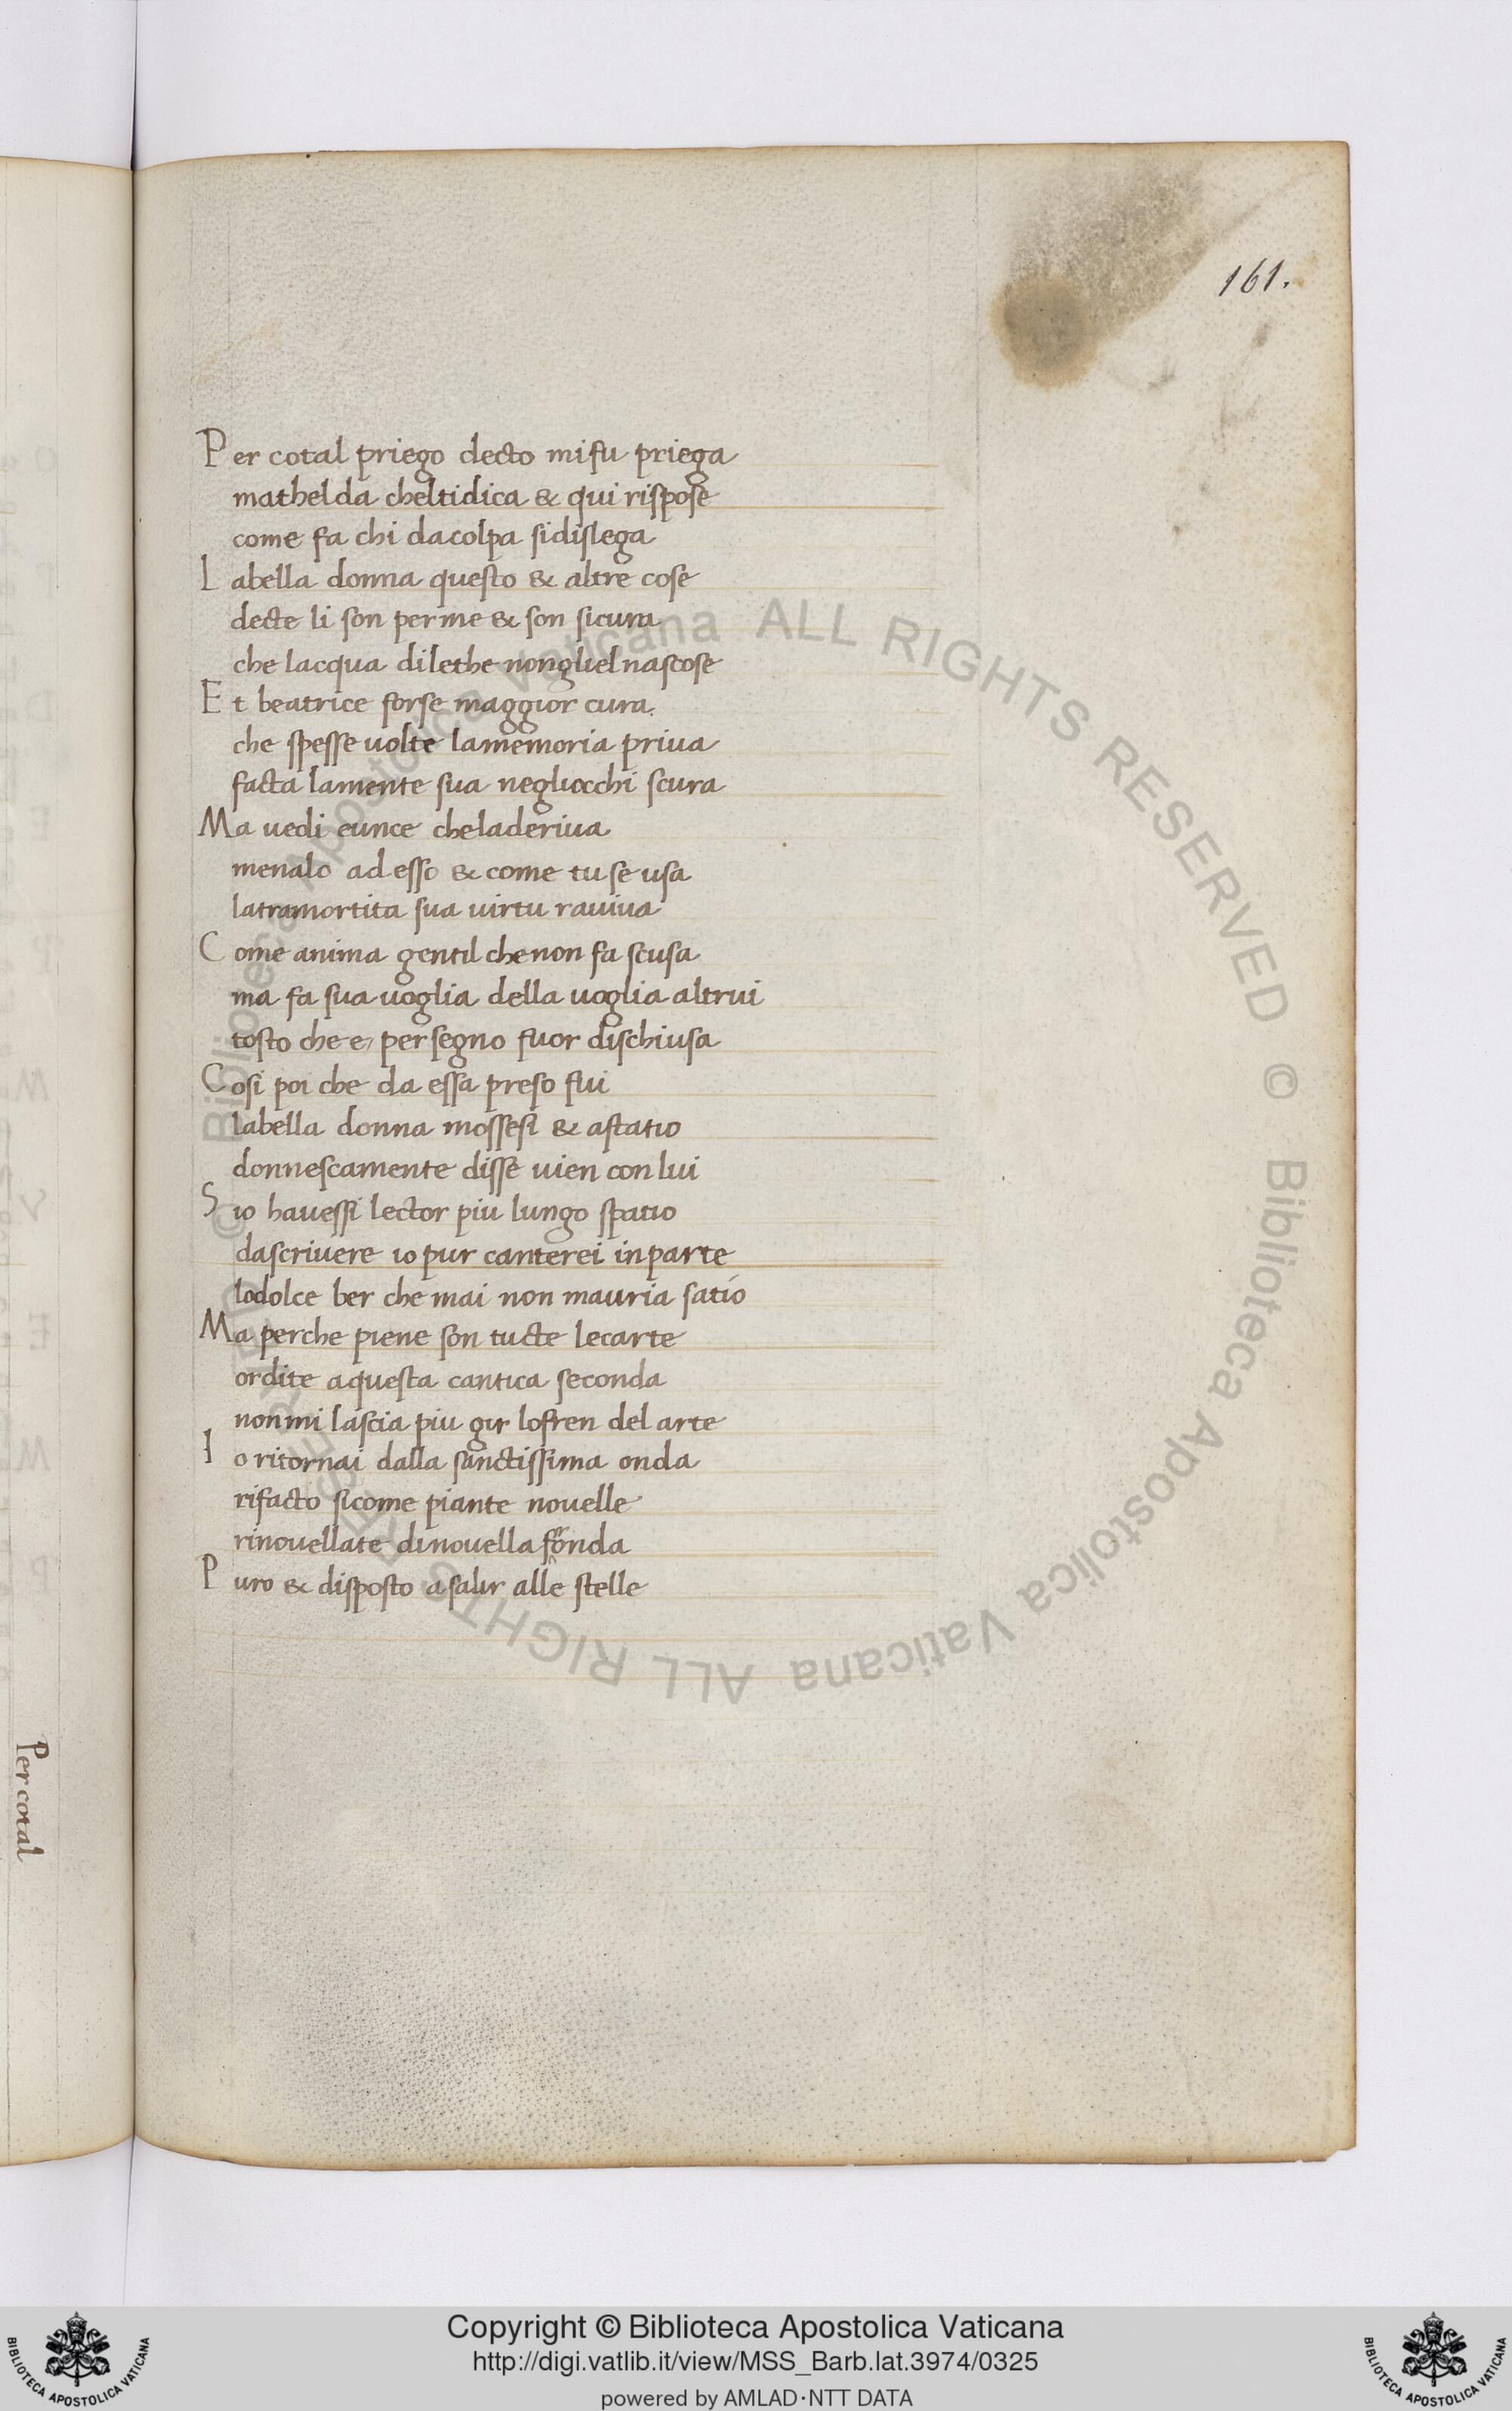 161.
Per cotal priego decto mi fu priega
mathelda cheltidica & qui rispose
come fa chi dacolpa sidislega
Labella donna questo & altre cose
decte li son perme & son sicura
che lacqua dilethe nongliel nascose
Et beatrice forse maggior cura.
che spesse uolte lamemoria priua
facta lamente sua negliocchi scura
Ma uedi eunce cheladeriua
menalo ad esso & come tu se usa
latramortita sua uirtu rauiua
Come anima gentil che non fa scusa
ma fa sua uoglia della uoglia altrui
tosto che e, per segno fuor dischiusa
Cosi poi che da essa preso fui
labella donna mossesi & astatio
donnescamente disse uien con lui
Sio hauessi lector piu lungo spatio
dascriuere io pur canterei inparte
lodolce ber che mai non mauria satio
Ma perche piene son tucte lecarte
ordite aquesta cantica seconda
nonmi lascia piu gir lofren del arte
Io ritornai dalla sanctissima onda
rifacto sicome piante nouelle
rinouellate dinouella fronda
Puro & disposto asalir alle stelle
Per cotal
© Biblioteca Apostolica Vaticana ALL RIGHTS RESERVED © Biblioteca Apostolica Vaticana ALL RIGHTS RESERVED
Copyright © Biblioteca Apostolica Vaticana
http://digi.vatlib.it/view/MSS_Barb.lat.3974/0325
powered by AMLAD·NTT DATA
BIBLIOTECA APOSTOLICA VATICANA
BIBLIOTECA APOSTOLICA VATICANA